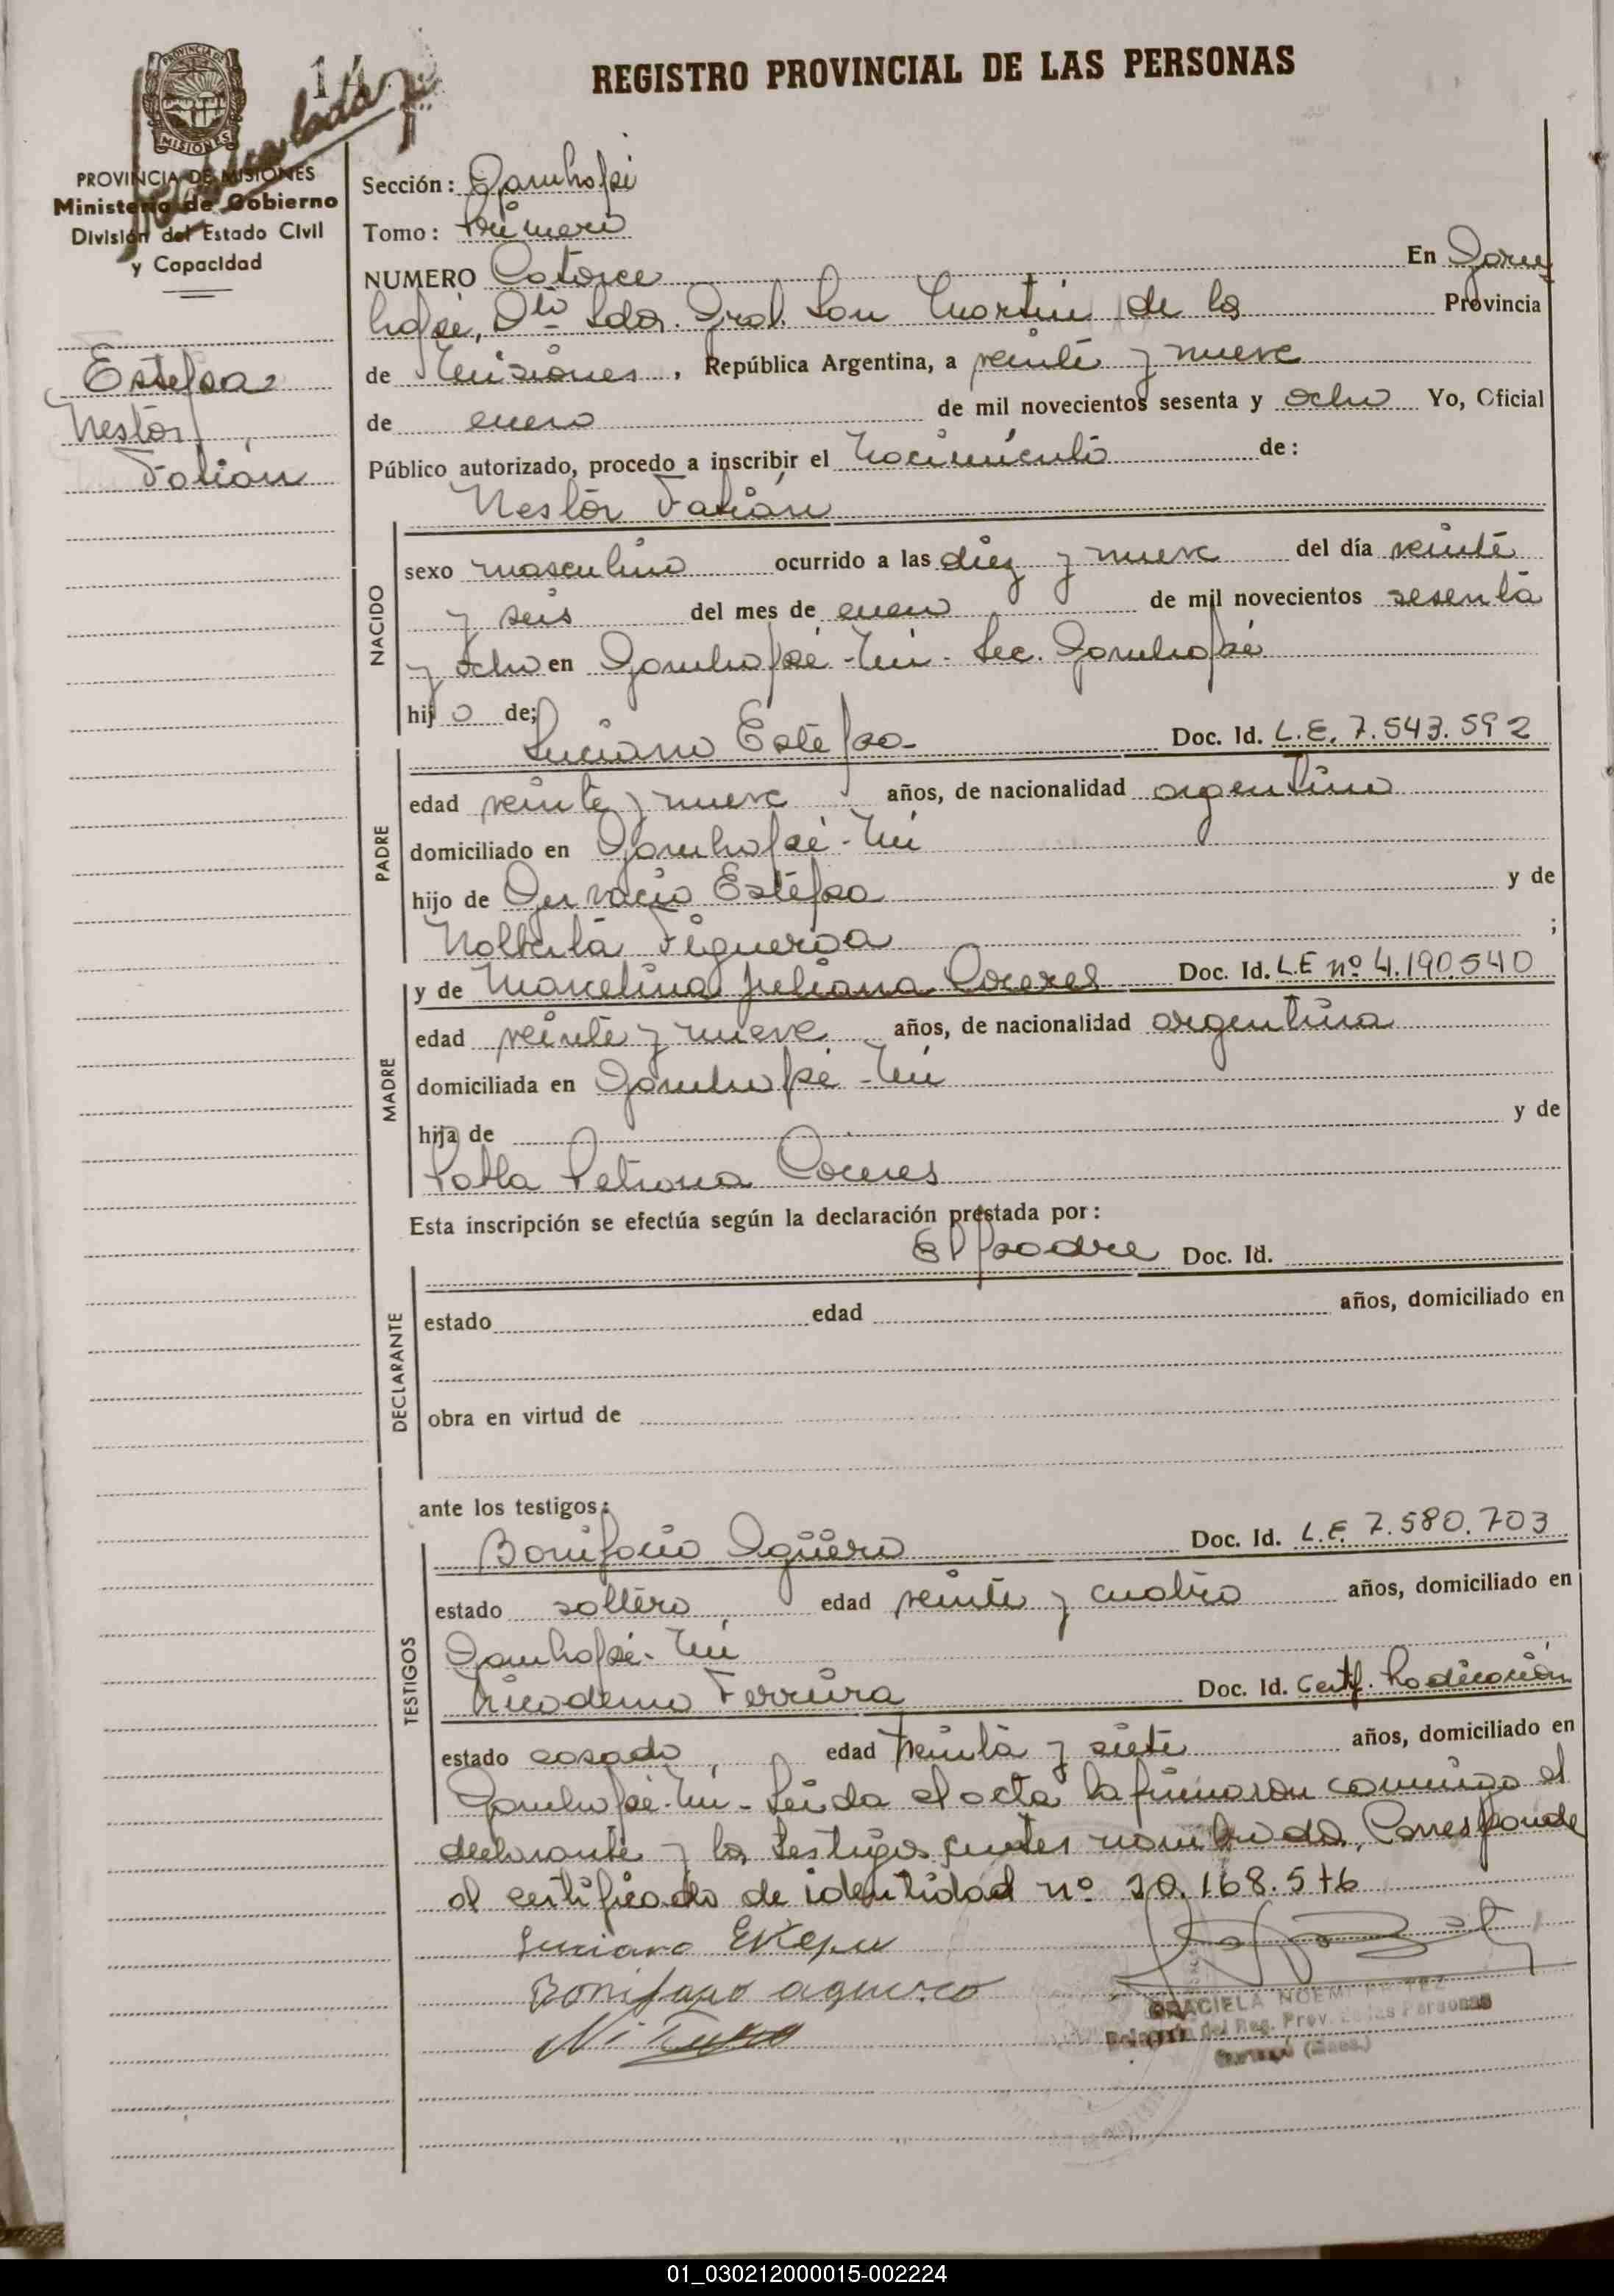 REGISTRO PROVINCIAL DE LAS PERSONAS
14
PROVINCIA DE MISIONES
MISIONES
PROVINCIA DE MISIONES
Ministerio de Gobierno
División del Estado Civil
y Capacidad
Estepa
Nestor
Fabián
Sección: Garuhapé
Tomo: Primero
NUMERO Catorce En Garu
hapé, Dto Ldor. Gral. San Martin de la Provincia
de Misiones, República Argentina, a veinte y nueve
de enero de mil novecientos sesenta y ocho Yo, Oficial
Público autorizado, procedo a inscribir el Nacimiento de:
Nestor Fabián
NACIDO
sexo masculino ocurrido a las diez y nueve del día veinte
y seis del mes de enero de mil novecientos sesenta
y ocho en Garuhapé-Mi - Sec. Garuhapé
hijo de;
PADRE
Luciano Estepa- Doc. Id. L.E. 7.543.592
edad veinte y nueve años, de nacionalidad argentina
domiciliado en Garuhapé-Mi
hijo de Gervacio Estepa y de
Nolberta Figueroa ;
MADRE
y de Marcelina Juliana Caceres Doc. Id. L.E nº 4.190.540
edad veinte y nueve años, de nacionalidad argentina
domiciliada en Garuhapé-Mi
hija de y de
Pabla Petrona Caceres
Esta inscripción se efectúa según la declaración prestada por:
DECLARANTE
El padre Doc. Id.
estado edad años, domiciliado en
obra en virtud de
ante los testigos:
TESTIGOS
Bonifacio Agüero Doc. Id. L.E. 7.580.703
estado soltero, edad veinte y cuatro años, domiciliado en
Garuhapé-Mi
Nicodemo Ferreira Doc. Id. Certf. Radicación
estado casado, edad treinta y siete años, domiciliado en
Garuhapé-Mi - Leida el acta la firmaron conmigo el
declarante y los testigos antes nombrados. Corresponde
al certificado de identidad nº 20.168.576
Luciano Estepa
Bonifacio aguero
GRACIELA NOEMI
del Reg. Prov. de las Personas
01_030212000015-002224